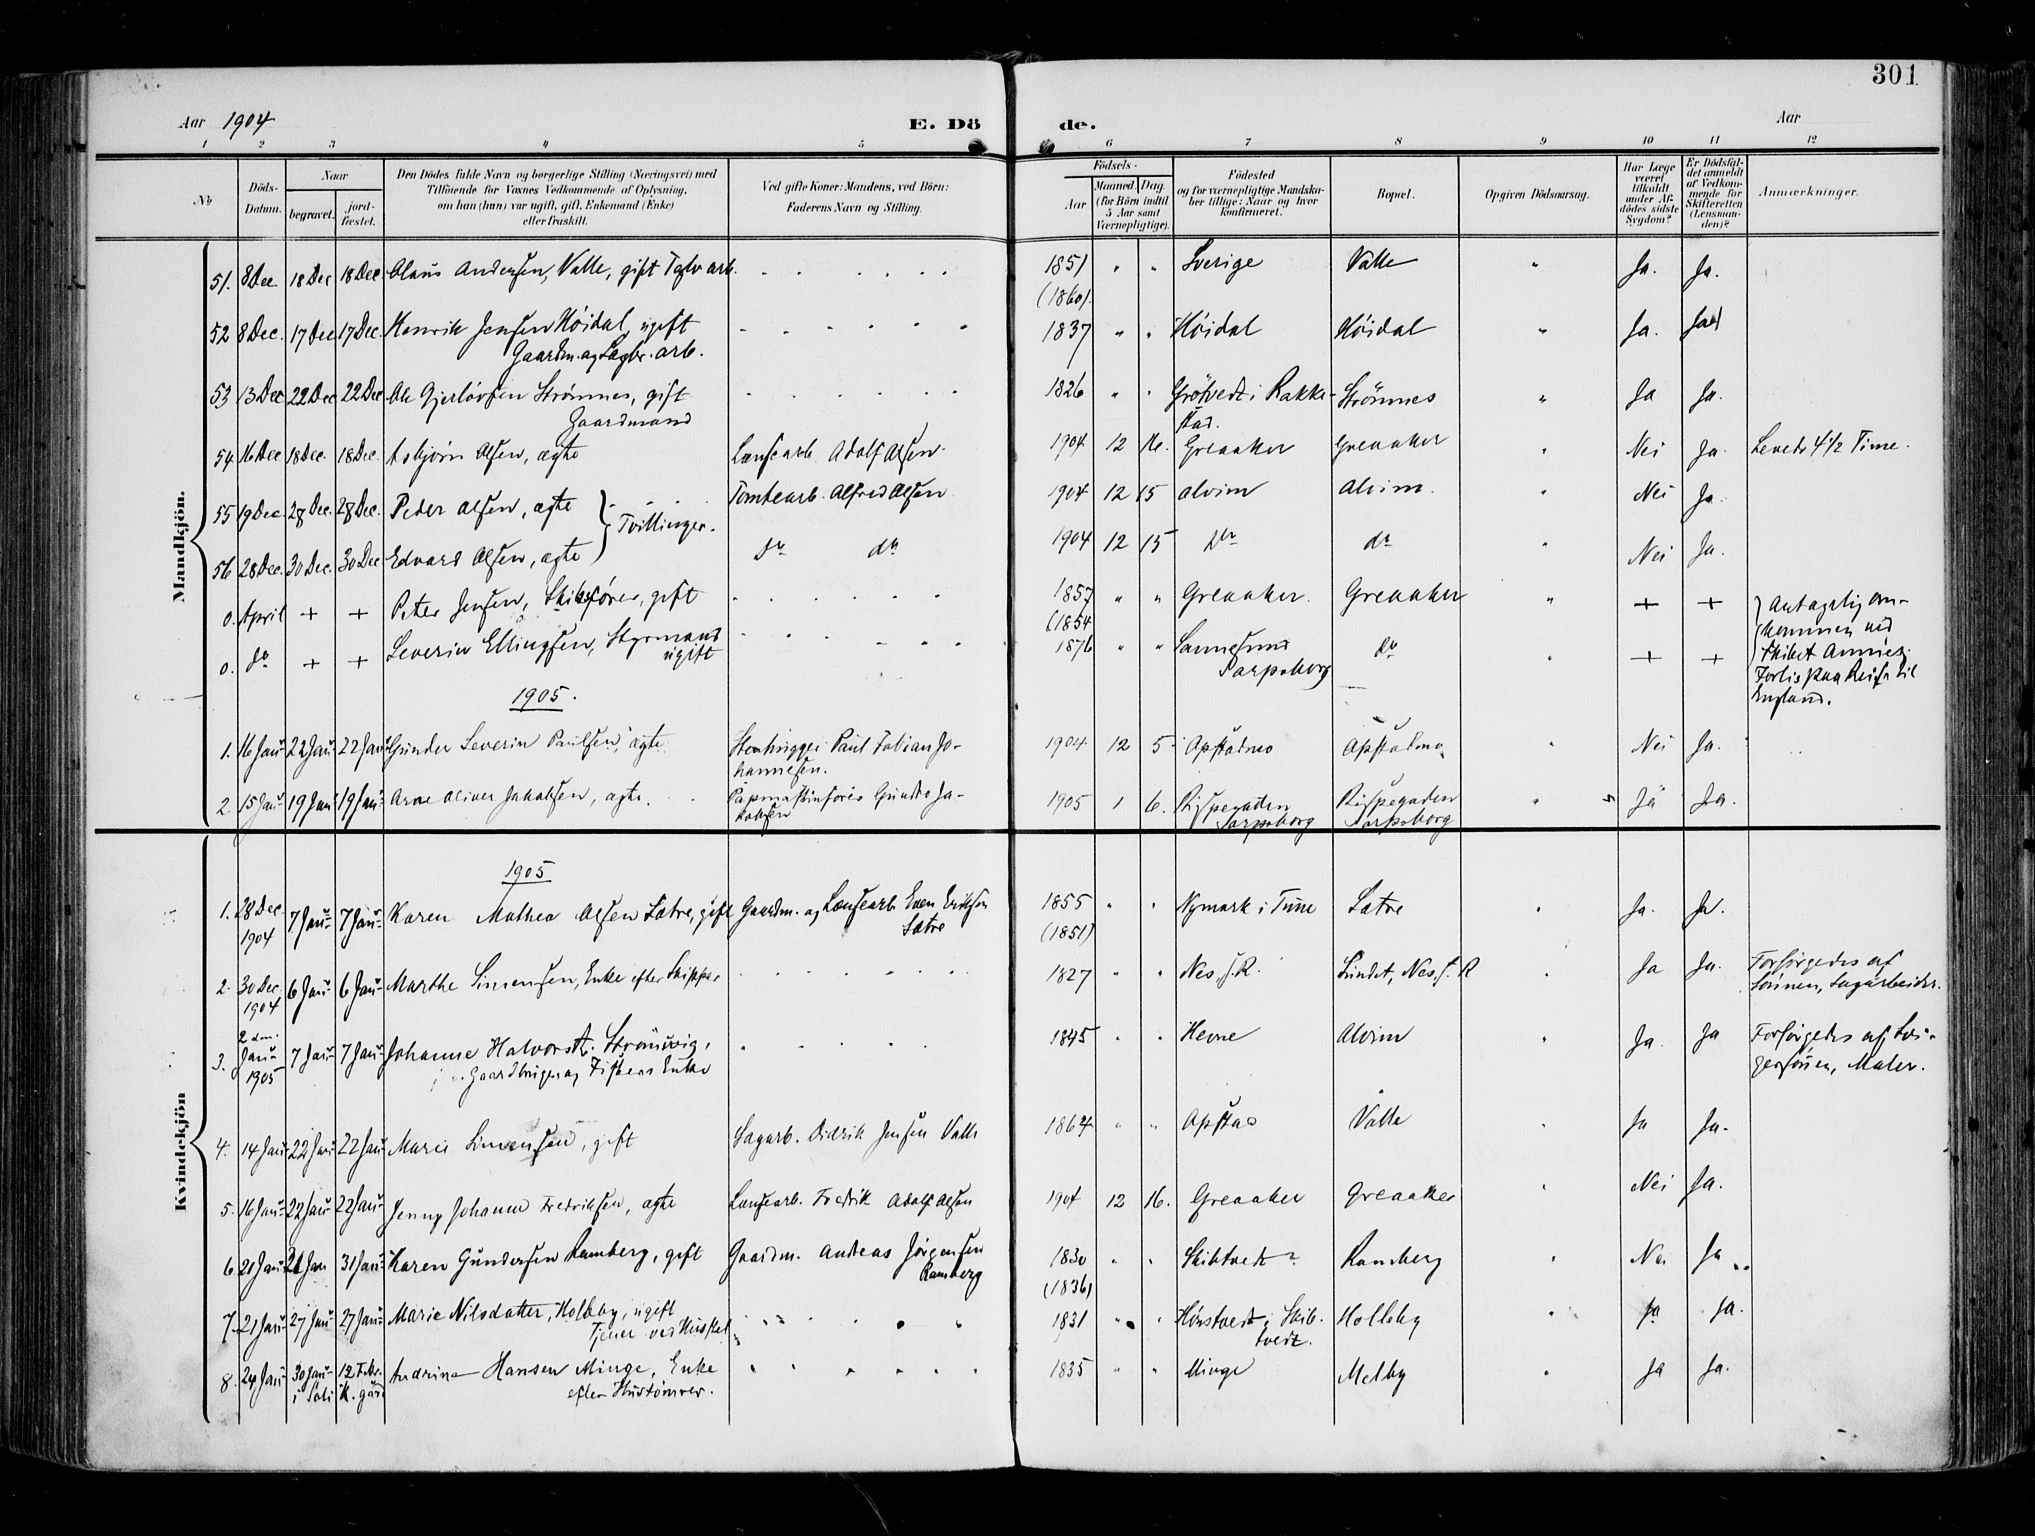 301
Aar 1904 E. Dö de. Aar
1 2 3 4 5 6 7 8 9 10 11 12
No
Döds-Datum.
Naar
begravet.
jord-fæstet.
Den Dödes fulde Navn og borgerlige Stilling (Næringsvei) med
Tilföiende for Voxnes Vedkommende af Oplysning,
om han (hun) var ugift, gift, Enkemand (Enke)
eller fraskilt.
Ved gifte Koner: Mandens, ved Börn:
Faderens Navn og Stilling.
Födsels-
Aar
Maaned. Dag.
(for Börn indtil
5 Aar samt
Værnepligtige).
Födested
og for værnepligtige Mandska-
ber tillige: Naar og hvor
konfirmeret.
Bopæl.
Opgiven Dödsaarsag.
Har Læge
været
tilkaldt
under Af-
dödes sidste
Sygdom?
Er Dödsfal-
det anmeldt
af Vedkom-
mende for
Skifteretten
(Lensman-
den)?
Anmærkninger.
Mandkjön.
51. 8 Dec. 18 Dec 18 Dec. Claus Andersen, Valle, gift Tglv arb. 1851 (1860). Sverige Valle " Ja. Ja.
52 8 Dec. 17 Dec 17 Dec. Henrik Jensen Höidal, ugift 1837 " " Höidal Höidal " Ja. Ja
Gaardm. og Sagbr. arb.
53 13 Dec 22 Dec 22 Dec. Ole Gjerlövsen Strömnes, gift 1826 " " Grötvedt i Rakke- Strömnes " Ja Ja.
Gaardmand stad.
54 16 Dec 18 Dec. 18 Dec. Asbjörn Olsen, ægte Lænsearb. Adolf Olsen 1904 12 16. Greaaker Greaaker " Nei Ja. Levede 4 1/2 Time.
55 19 Dec. 28 Dec. 28 Dec. Peder Olsen, ægte Tomtearb. Alfred Olsen 1904 12 15 Alvim Alvim. " Nei Ja.
Tvillinger.
56 28 Dec. 30 Dec. 30 Dec Edvard Olsen, ægte do do 1904 12 15 do do " Nei Ja.
0. April + + Peter Jensen, Skibsförer, gift 1857 (1854 " " Greaaker. Greaaker " + + Antagelig om-
kommen ved
0. do + + Severin Ellingsen, Styrmand 1876 " " Sannesund do " + + Skibet
ugift Sarpsborg Forlis paa Reise til
England.
1905.
1. 16 Jan 22 Jan 22 Jan Gunder Severin Paulsen, ægte Stenhugger Paul Fabian Jo- 1904 12 5 Opstadmo Opstadmo " Nei Ja.
hannesen.
2. 15 Jan 19 Jan 19 Jan Arne Oliver Jakobsen, ægte. Papmaskinförer Ja- 1905 1 6. Rispegaden Rispegaden " Ja Ja.
kobsen Sarpsborg Sarpsborg
Kvindekjön
1905
1. 28 Dec. 7 Jan 7 Jan Karen Mathea Olsen Satre, gift Gaardm. og Lænsearb Even Eriksen 1855 " " Nymark i Tune Satre " Ja. Ja.
1904 Satre (1851)
2. 30 Dec. 6 Jan 6 Jan Marthe Simensen, Enke efter Skipper 1827 " " Nes, s. R. Sundet, Nes, s. R " Ja Ja. Forsörgedes af
1904 Sönnen, Sagarbeider.
3. 2 Jan 7 Jan 7 Jan Johanne Halvorsd. Strömvig, 1845 " " Hevne Alvim " Ja. Ja Forsörgedes af Svi-
1905 Gaardbruger og Fiskers Enke gersönnen, Maler.
4. 14 Jan 22 Jan 22 Jan Marie Simensen, gift Sagarb. Didrik Jensen Valle 1864 " " Opstad Valle " Ja Ja.
5. 16 Jan 22 Jan 22 Jan Jenny Johanne Fredriksen, ægte Lænsearb. Fredrik Adolf Olsen 1904 12 16. Greaaker Greaaker " Nei Ja.
6 21 Jan Jan 31 Jan Karen Gundersen Ramberg, gift Gaardm. Andreas Jörgensen 1830 " " Skibtvedt? Ramberg " Nei Ja
Ramberg (1836)
7. 21 Jan 27 Jan 27 Jan Marie Nilsdatter, Holleby, ugift 1831 " " i Skib- Holleby " Ja Ja.
Tjener ved tvedt.
8. 24 Jan 30 Jan 12 Febr. Andrine Hansen Minge, Enke 1835 " " Minge Melby " Ja Ja.
i Soli K. gård efter Hustömrer.